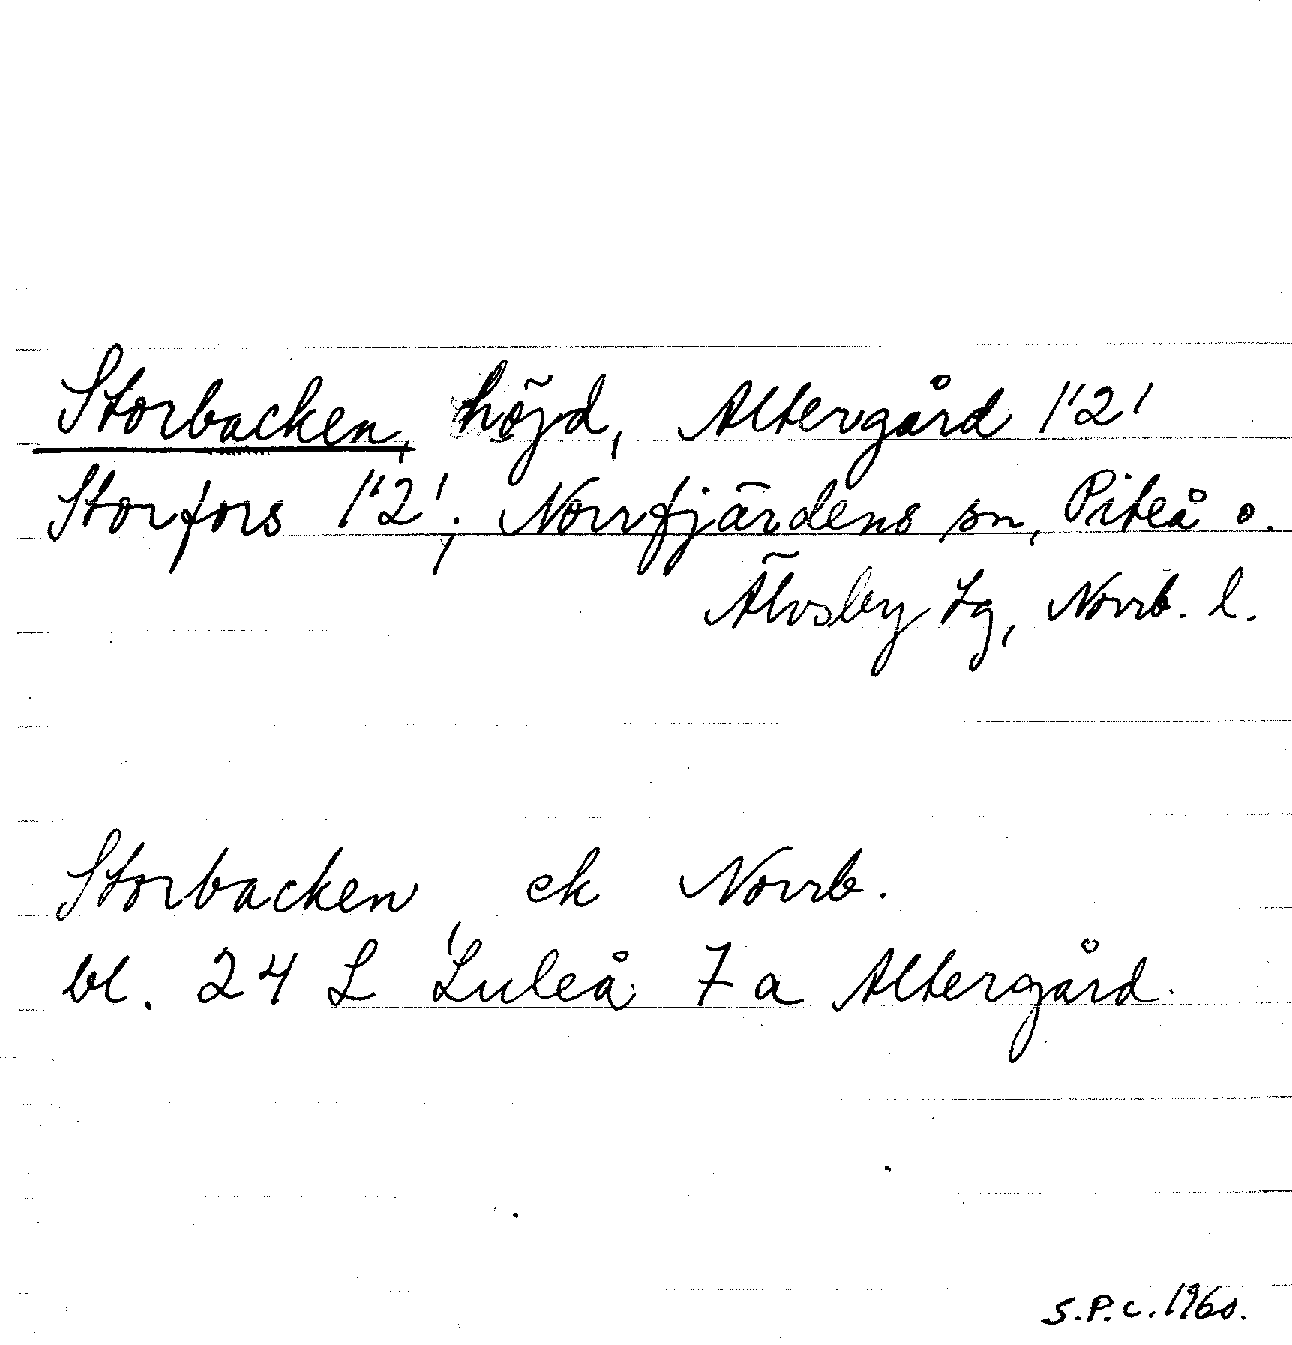 Storbacken, höjd, Altergård 1'2'
Storfors 1'2'; Norrfjärdens sn, Piteå o.
Älvsby tg, Norrb. l.
Storbacken ek Norrb.
bl. 24 L Luleå 7 a Altergård.
S.P.C. 1960.